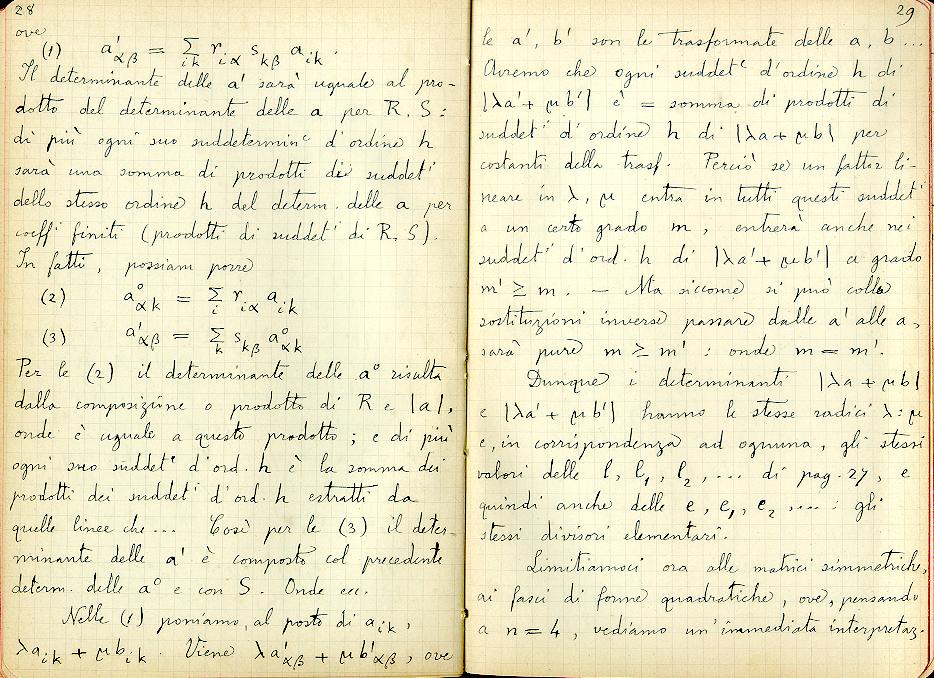 28
ove
(1) a'αβ = Σik riα skβ aik .
Il determinante delle a' sarà uguale al pro-
dotto del determinante delle a per R. S :
di più ogni suo suddetermin.e d'ordine h
sarà una somma di prodotti di suddet.i
dello stesso ordine h del determ. delle a per
coeff.i finiti (prodotti di suddet.i di R, S).
In fatti, possiam porre
(2) a°αk = Σi riα aik
(3) a'αβ = Σk skβ a°αk
Per le (2) il determinante delle a° risulta
dalla composizione o prodotto di R e |a|,
onde è uguale a questo prodotto ; e di più
ogni suo suddet.e d'ord. h è la somma dei
prodotti dei suddet.i d'ord. h estratti da
quelle linee che ... Così per le (3) il deter-
minante delle a' è composto col precedente
determ. delle a° e con S. Onde ecc.
Nelle (1) poniamo, al posto di aik,
λaik + μbik . Viene λa'αβ + μb'αβ , ove
29
le a', b' son le trasformate delle a, b ...
Avremo che ogni suddet.e d'ordine h di
|λa' + μb'| è = somma di prodotti di
suddet.i d'ordine h di |λa + μb| per
costanti della trasf. Perciò se un fattor li-
neare in λ, μ entra in tutti questi suddet.i
a un certo grado m, entrerà anche nei
suddet.i d'ord. h di |λa' + μb'| a grado
m' ≥ m. — Ma siccome si può colla
sostituzioni inverse passare dalle a' alle a,
sarà pure m ≥ m' : onde m = m'.
Dunque i determinanti |λa + μb|
e |λa' + μb'| hanno le stesse radici λ : μ
e, in corrispondenza ad ognuna, gli stessi
valori delle l, l1, l2, ... di pag. 27, e
quindi anche delle e, e1, e2, ... : gli
stessi divisori elementari.
Limitiamoci ora alle matrici simmetriche,
ai fasci di forme quadratiche, ove, pensando
a n = 4, vediamo un'immediata interpretaz.